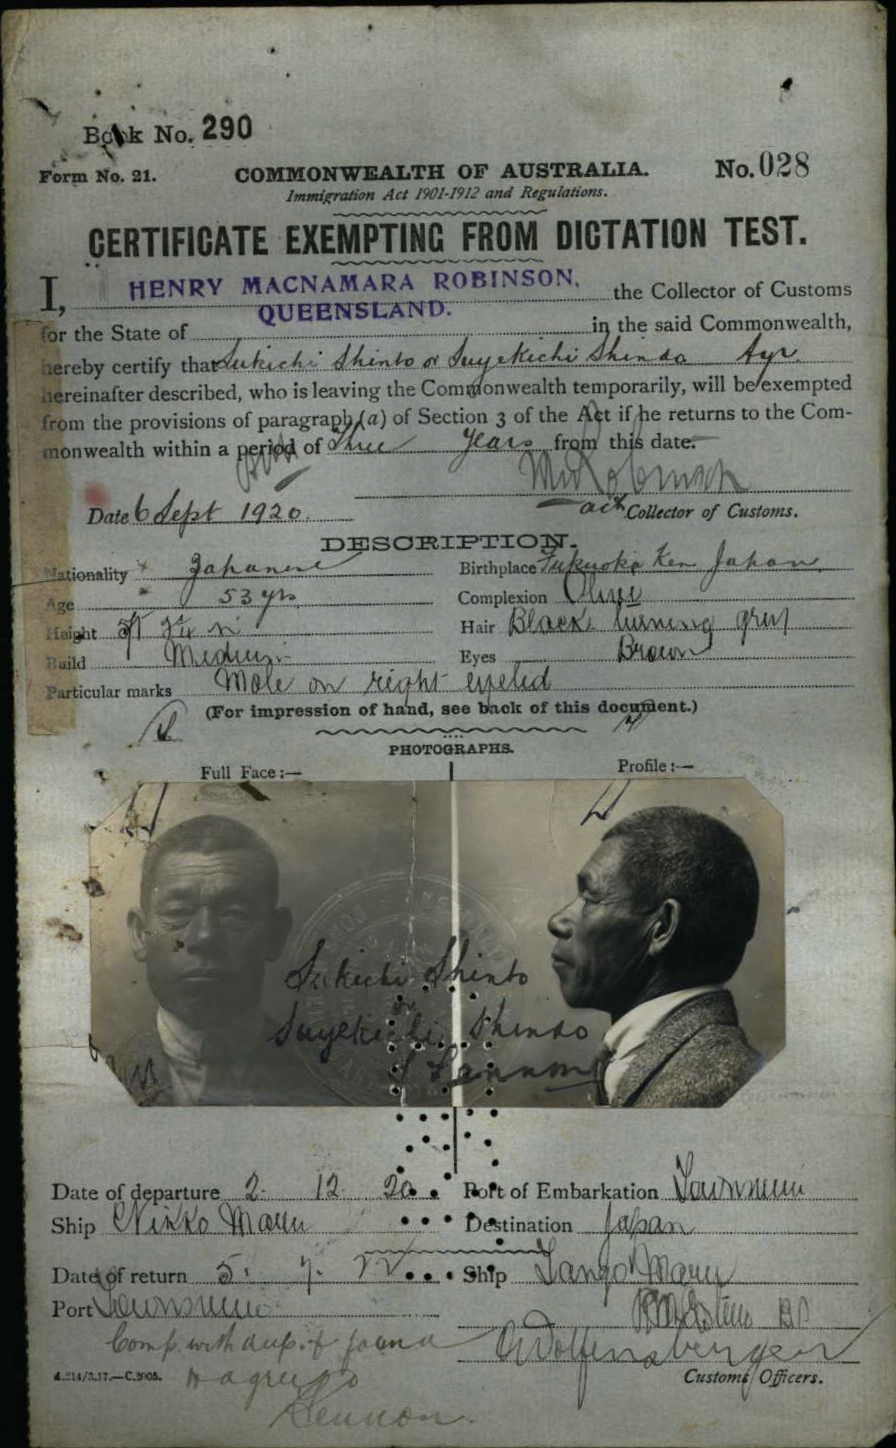 Book No. 290
Form No. 21. COMMONWEALTH OF AUSTRALIA. No. 028
Immigration Act 1901-1912 and Regulations.
CERTIFICATE EXEMPTING FROM DICTATION TEST.
I, HENRY MACNAMARA ROBINSON, the Collector of Customs
for the State of QUEENSLAND. in the said Commonwealth,
hereby certify that Sukichi Shinto or Suyekichi Shindo Ayr
hereinafter described, who is leaving the Commonwealth temporarily, will be exempted
from the provisions of paragraph (a) of Section 3 of the Act if he returns to the Com-
monwealth within a period of Three Years from this date.
Date 6 Sept 1920. act Collector of Customs.
DESCRIPTION.
Nationality Japanese Birthplace Fukuoka Ken Japan
Age 53 yrs Complexion Olive
Height 5ft Hair Black turning grey
Build Medium Eyes Brown
Particular marks Mole on right eyelid
(For impression of hand, see back of this document.)
PHOTOGRAPHS.
Full Face:— Profile:—
Sukichi Shinto
or
Suyekichi Shindo
Lennon
Date of departure 2. 12. 20. Port of Embarkation Townsville
Ship Nikko Maru Destination Japan
Date of return 5. 7. 22 Ship Tango Maru
Port Townsville
Comp. with dup. & found
to agree
Customs Officers.
Lennon.